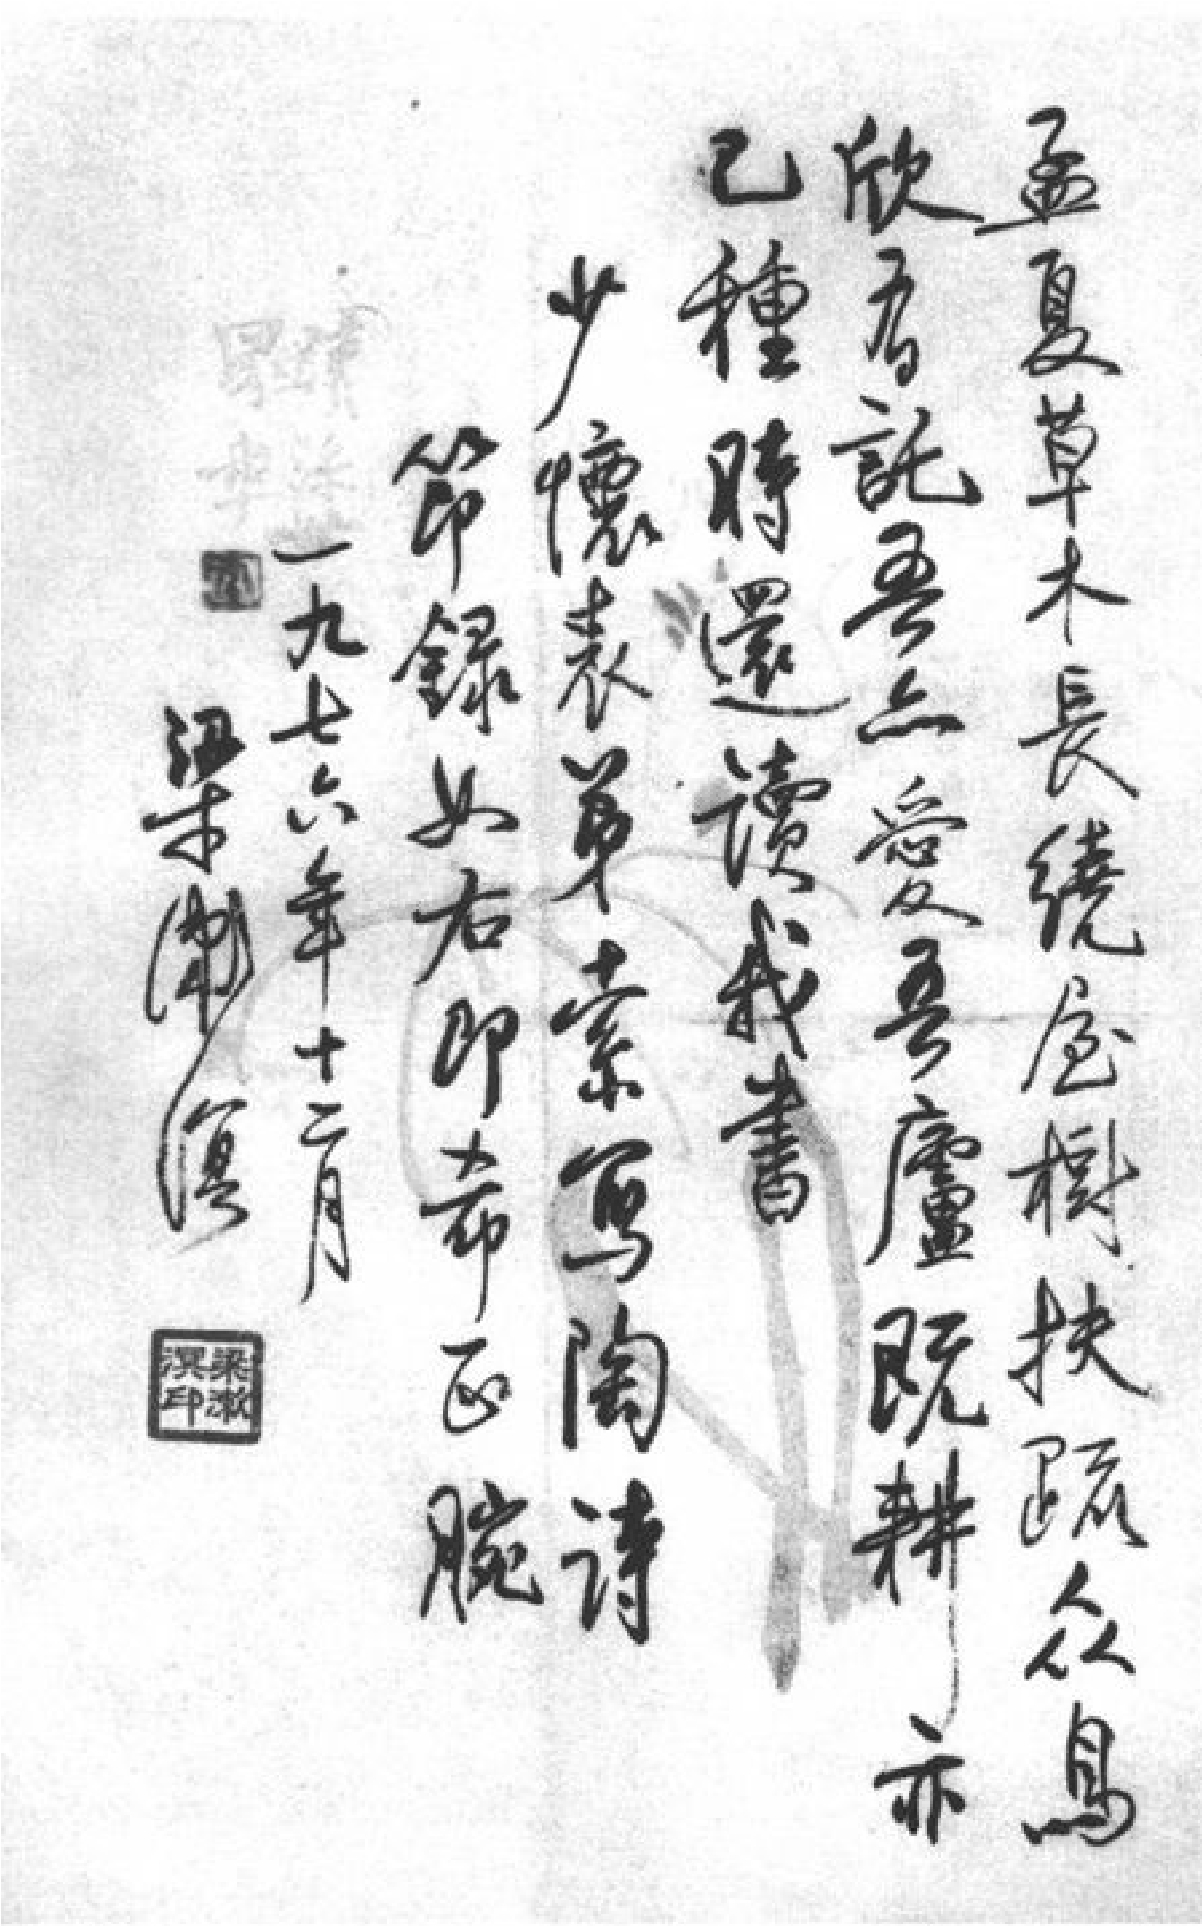 孟夏草木長繞屋樹扶疏众鳥
欣有託吾亦愛吾廬既耕亦
已種時還讀我書
少懷表弟索寫陶诗
節録如右即希正腕
一九七六年十二月
梁漱溟
梁漱溟印